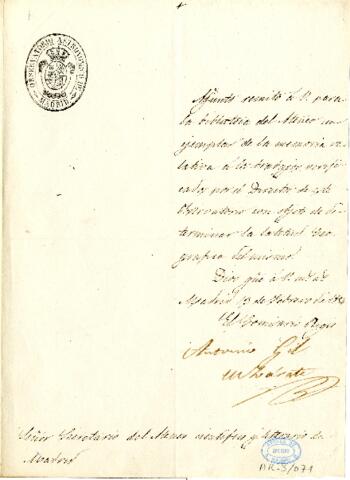 OBSERVATORIO ASTRONOMICO
MADRID
Adjunto remito á V. para
la biblioteca del Ateneo un
ejemplar de la memoria re-
lativa á los trabajos verifi-
cados por el Director de este
Observatorio con objeto de de-
terminar la latitud geo-
grafica del mismo.
Dios gue á V. ms. as.
Madrid 13 de Febrero de
El Comisario Regio
Antonio Gil
de Zarate
Señor Secretario del Ateneo cientifico y literario de
Madrid
AR-3/071